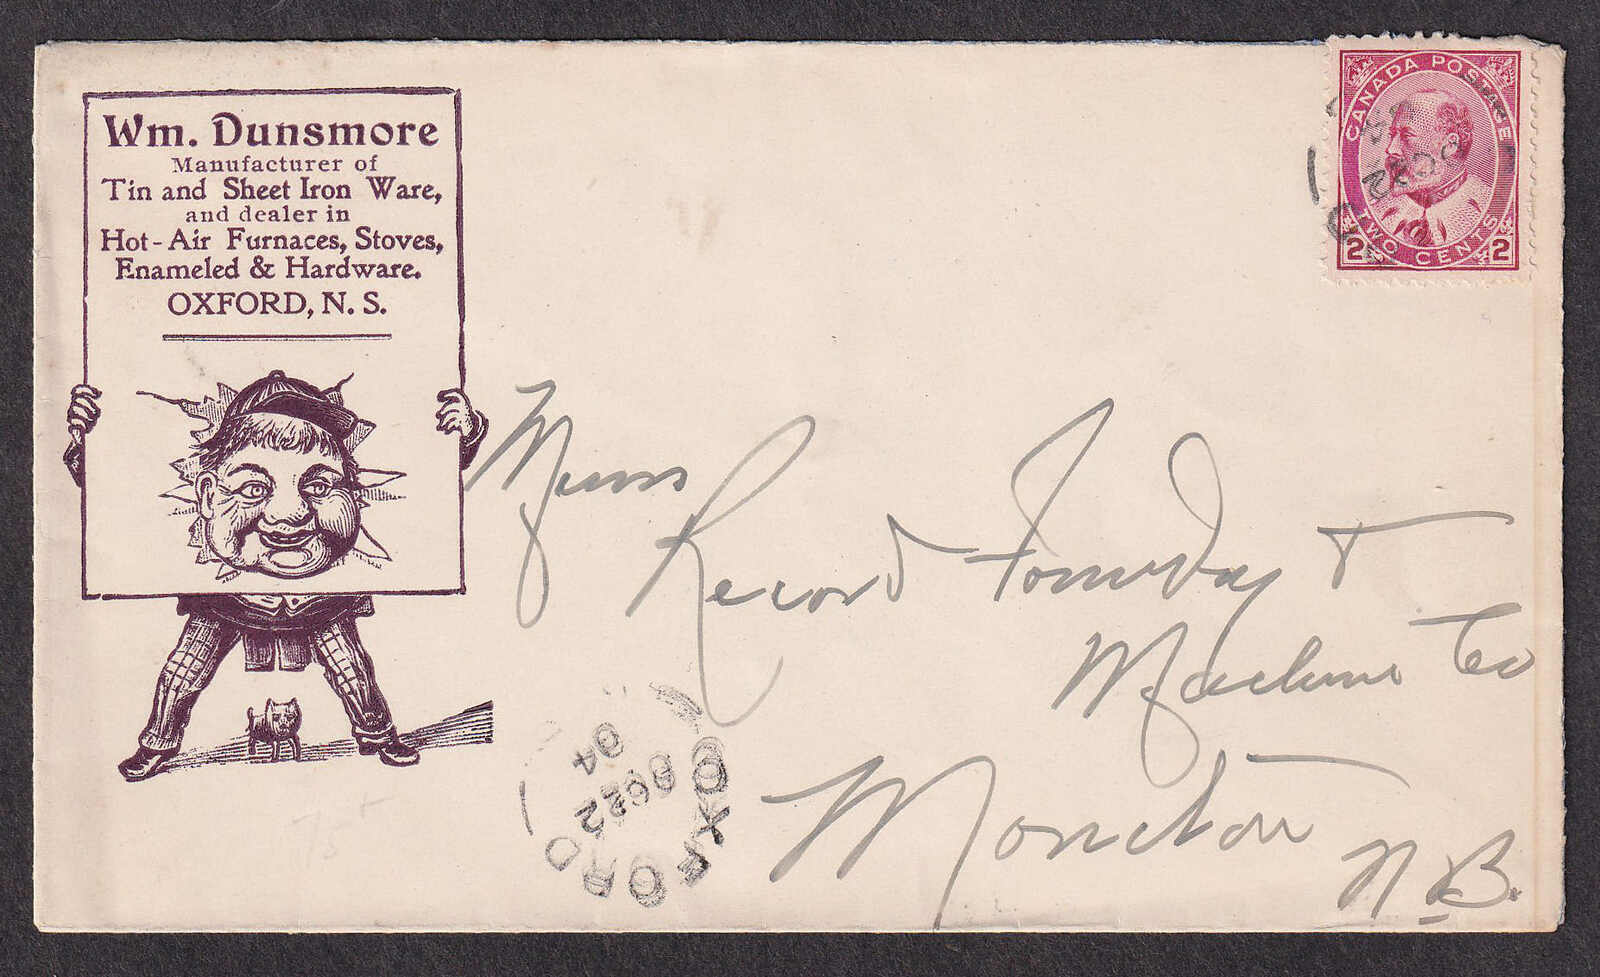 Wm. Dunsmore
Manufacturer of
Tin and Sheet Iron Ware,
and dealer in
Hot-Air Furnaces, Stoves,
Enameled & Hardware.
OXFORD, N. S.
CANADA POSTAGE
2 TWO CENTS 2
OC 22
Messrs
Record Foundry &
Machine Co
Moncton
N.B.
OXFORD
OC 22
04
75